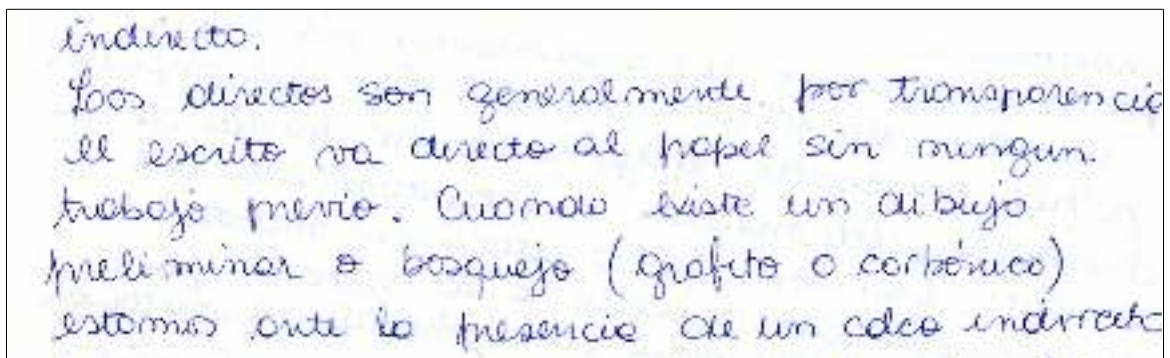 indirecto.
Loos directos son generalmente por transparencia
el escrito va directo al papel sin ningun.
trabajo previo. Cuando existe un dibujo
preliminar o bosquejo (grafito o carbónico)
estamos ante la presencia de un calco indirecto